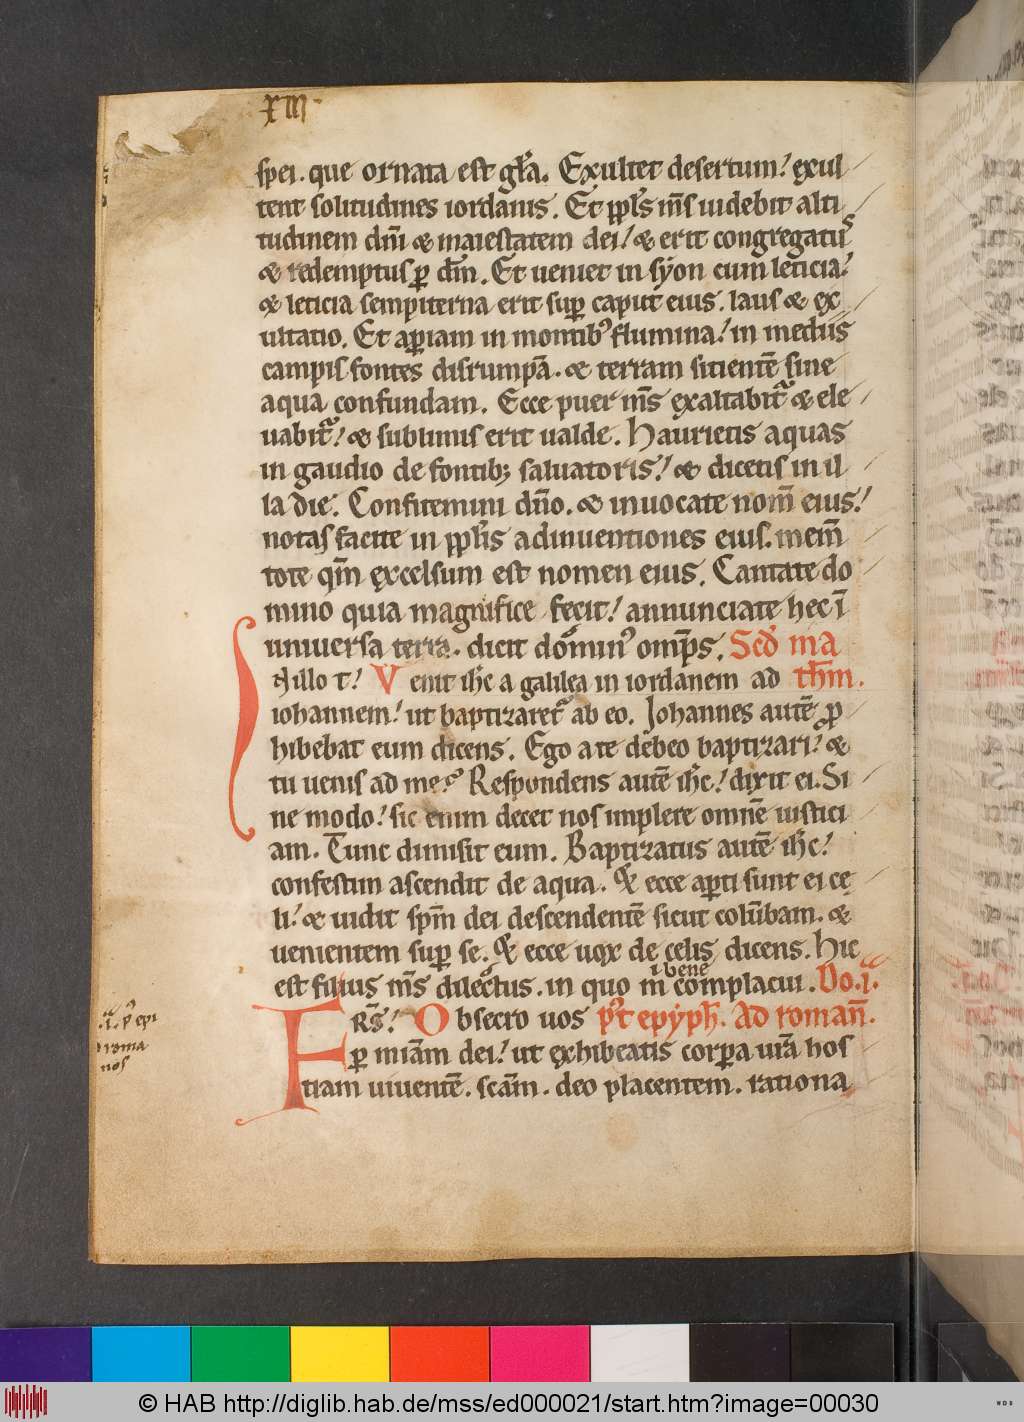 XIII
spei. que ornata est gl̄a. Exultet desertum! exul
tent solitudines iordanis. Et ppl̄s m̄s uidebit alti
tudinem dn̄i & maiestatem dei! & erit congregatus
& redemptus ꝑ dn̄m. Et ueniet in syon cum leticia!
& leticia sempiterna erit suꝑ caput eius. laus & ex
ultatio. Et aꝑiam in montibꝰ flumina! in mediis
campis fontes disrumpā. & terram sitientē sine
aqua confundam. Ecce puer m̄s exaltabit᷑ & ele
uabit᷑! & sublimis erit ualde. Haurietis aquas
in gaudio de fontibꝫ saluatoris! & dicetis in il
la die. Confitemini dn̄o. & inuocate nom̄ eius!
notas facite in ppl̄is adinuentiones eius. mem̄
tote qm̄ ęxcelsum est nomen eius. Cantate do
mino quia magnifice fecit! annunciate hec ī
uniuersa terra. dicit dominꝰ omp̄s. Scd̄ ma
In illo t! Venit ih̄c a galilea in iordanem ad th̄m.
iohannem! ut baptizaret᷑ ab eo. Johannes autē ꝓ
hibebat eum dicens. Ego a te debeo baptizari! &
tu uenis ad me? Respondens autē ih̄c! dixit ei. Si
ne modo! sic enim decet nos implere omnē iustici
am. Tunc dimisit eum. Baptizatus autē ih̄c!
confestim ascendit de aqua. & ecce aꝑti sunt ei cę
li! & uidit sp̄m dei descendentē sicut colūbam. &
uenientem suꝑ se. & ecce uox de cęlis dicens. Hic
est filius m̄s dilectus. in quo m̄ complacui. Do. i.
i bene
FRS̄! Obsecro uos p̄t epyph̄. Ad roman̄.
ꝑ miām dei! ut ęxhibeatis corꝑa ur̄a hos
tiam uiuentē. scām. deo placentem. rationa
.i. pꝰ epi
roma
nos
© HAB http://diglib.hab.de/mss/ed000021/start.htm?image=00030